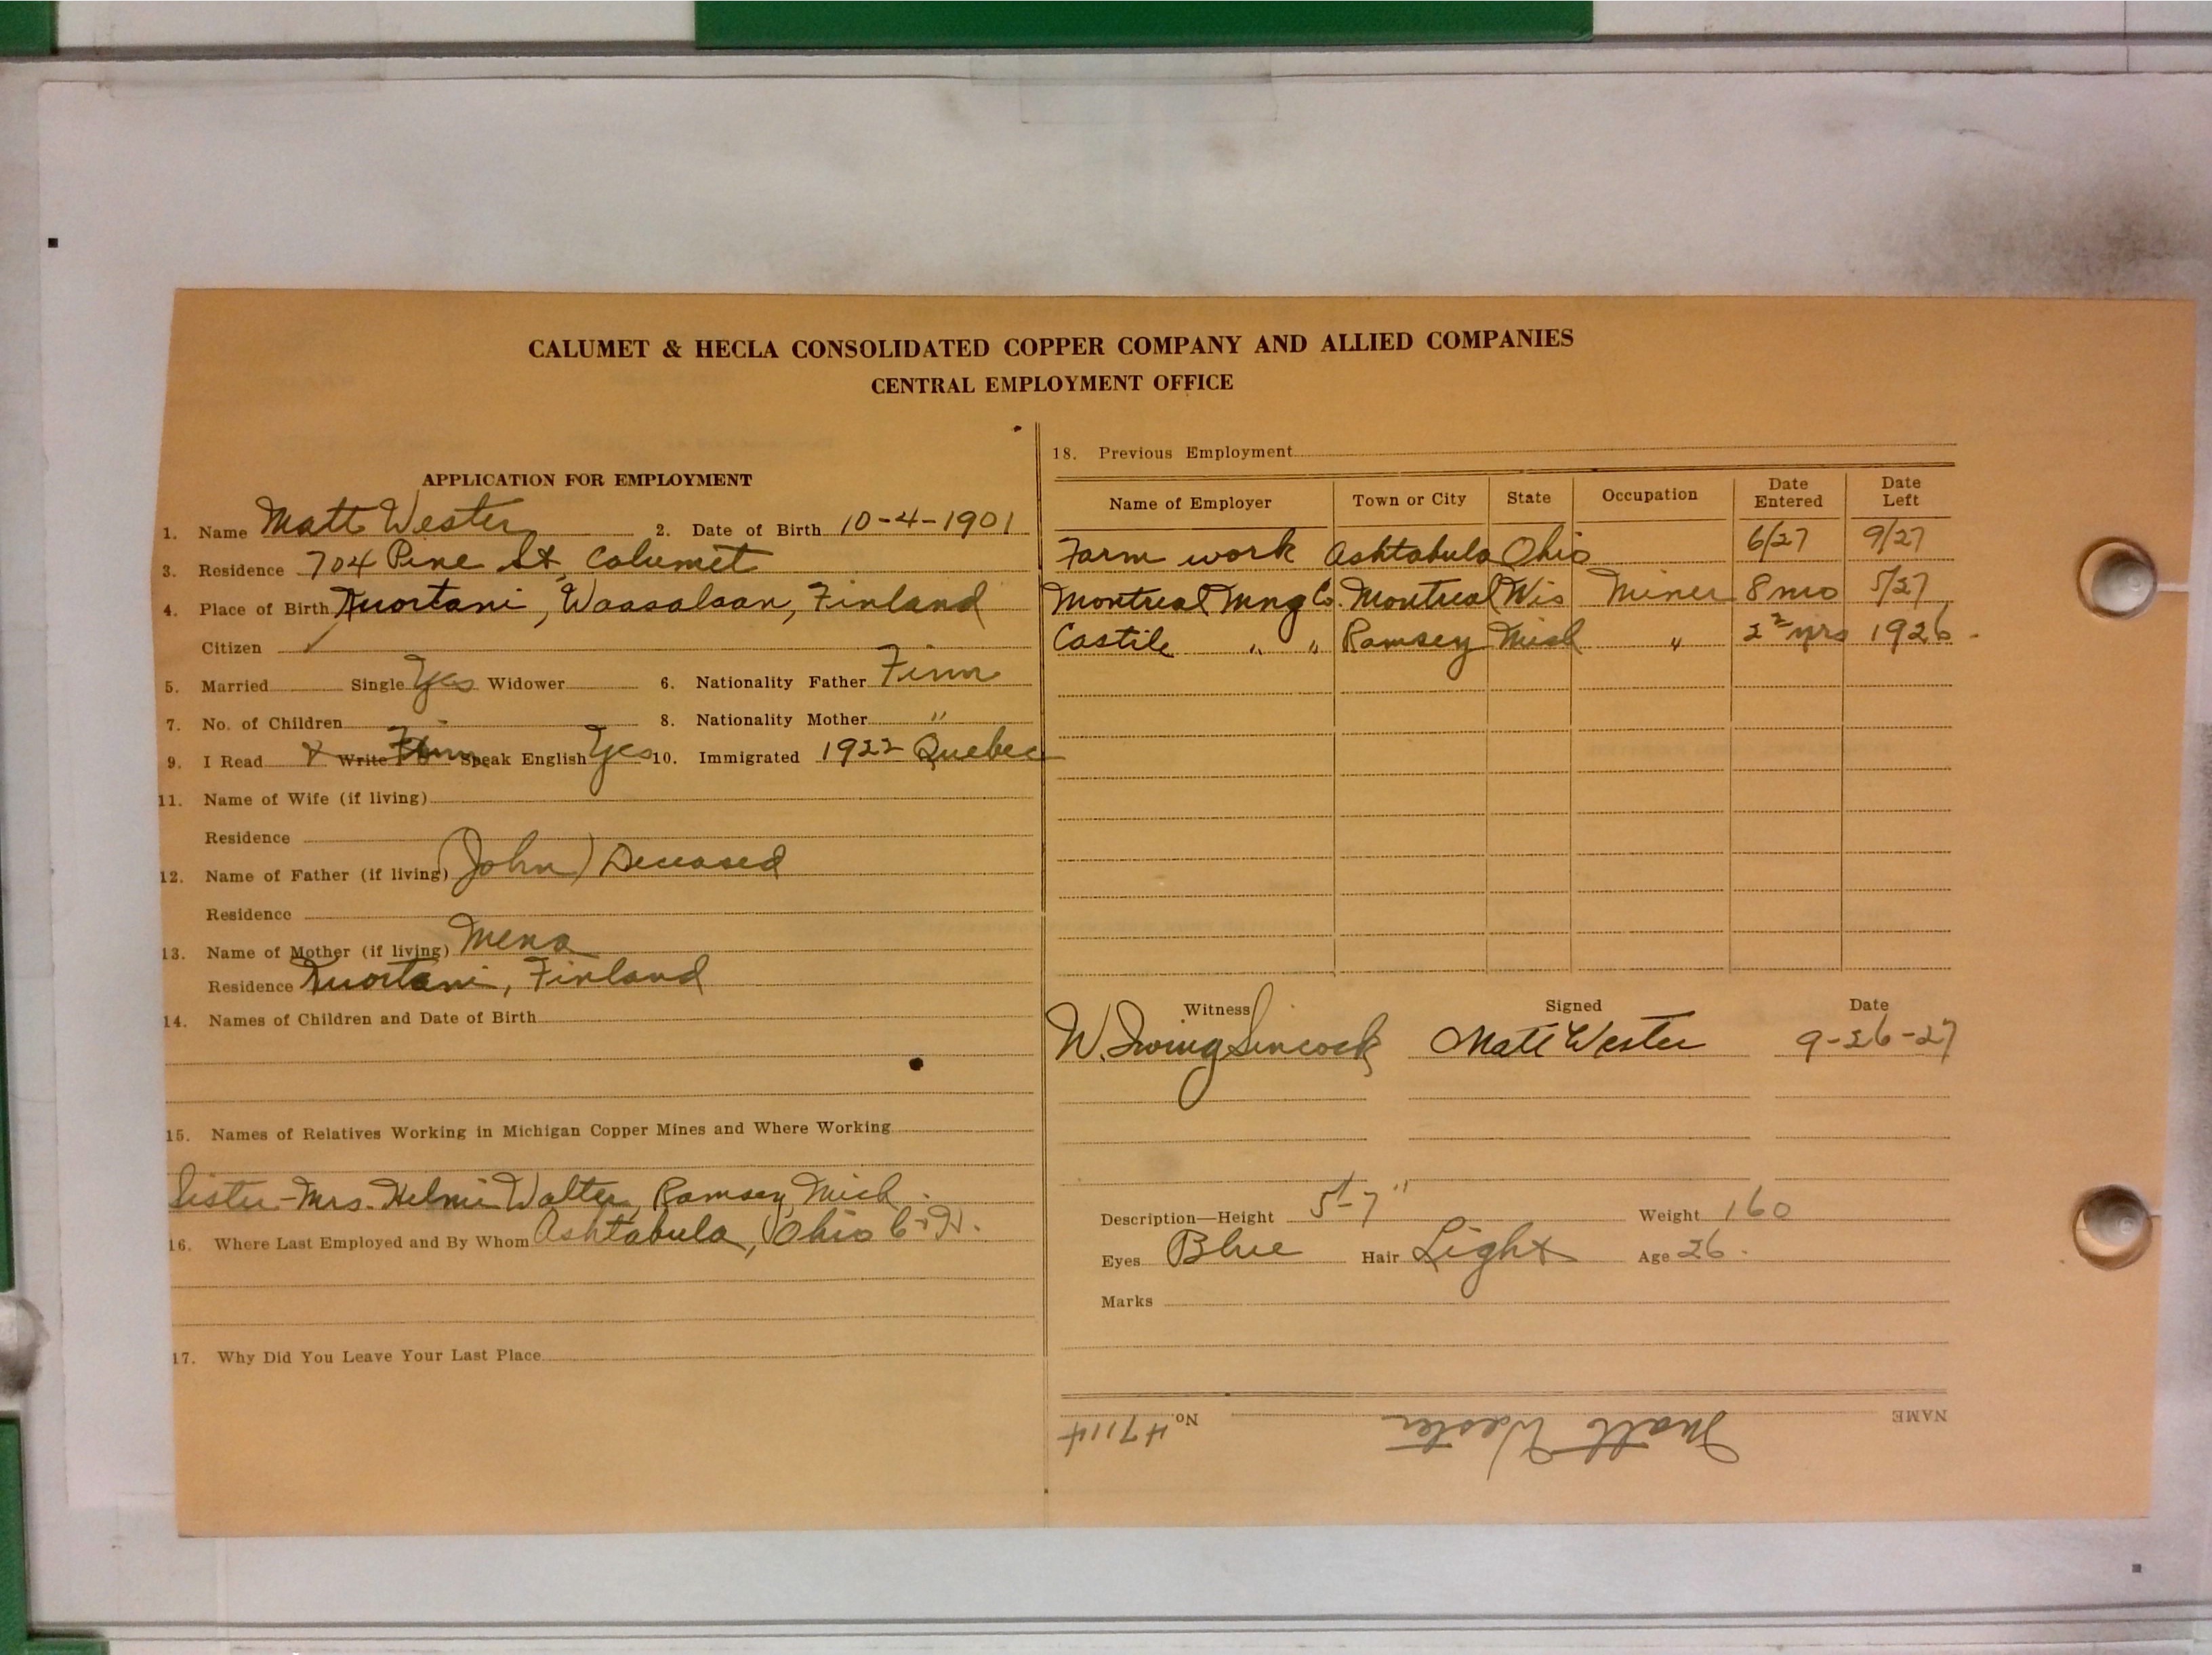 CALUMET & HECLA CONSOLIDATED COPPER COMPANY AND ALLIED COMPANIES
CENTRAL EMPLOYMENT OFFICE
APPLICATION FOR EMPLOYMENT
1. Name Matt Wester 2. Date of Birth 10-4-1901
3. Residence 704 Pine St, Calumet
4. Place of Birth Kuortani, Waasalaan, Finland
Citizen ✓
5. Married Single Yes Widower 6. Nationality Father Finn
7. No. of Children 8. Nationality Mother "
9. I Read & Write Finn Speak English Yes 10. Immigrated 1922 Quebec
11. Name of Wife (if living)
Residence
12. Name of Father (if living) (John) Deceased
Residence
13. Name of Mother (if living) Mena
Residence Kuortani, Finland
14. Names of Children and Date of Birth
15. Names of Relatives Working in Michigan Copper Mines and Where Working
Sister - Mrs. Helmi Walter, Ramsey, Mich.
16. Where Last Employed and By Whom Ashtabula, Ohio
17. Why Did You Leave Your Last Place
18. Previous Employment
Name of Employer Town or City State Occupation Date Entered Date Left
Farm work Ashtabula Ohio 6/27 9/27
Montreal Mng Co. Montreal Wis Miner 8 mo 5/27
Castile " " Ramsey Mich " yrs 1926
Witness Signed Date
W. Irving Sincock Matt Wester 9-26-27
Description—Height 5'-7" Weight 160
Eyes Blue Hair Light Age 26.
Marks
NAME Matt Wester No. 47114